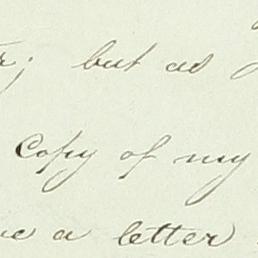 ; but as
Copy of my
a letter